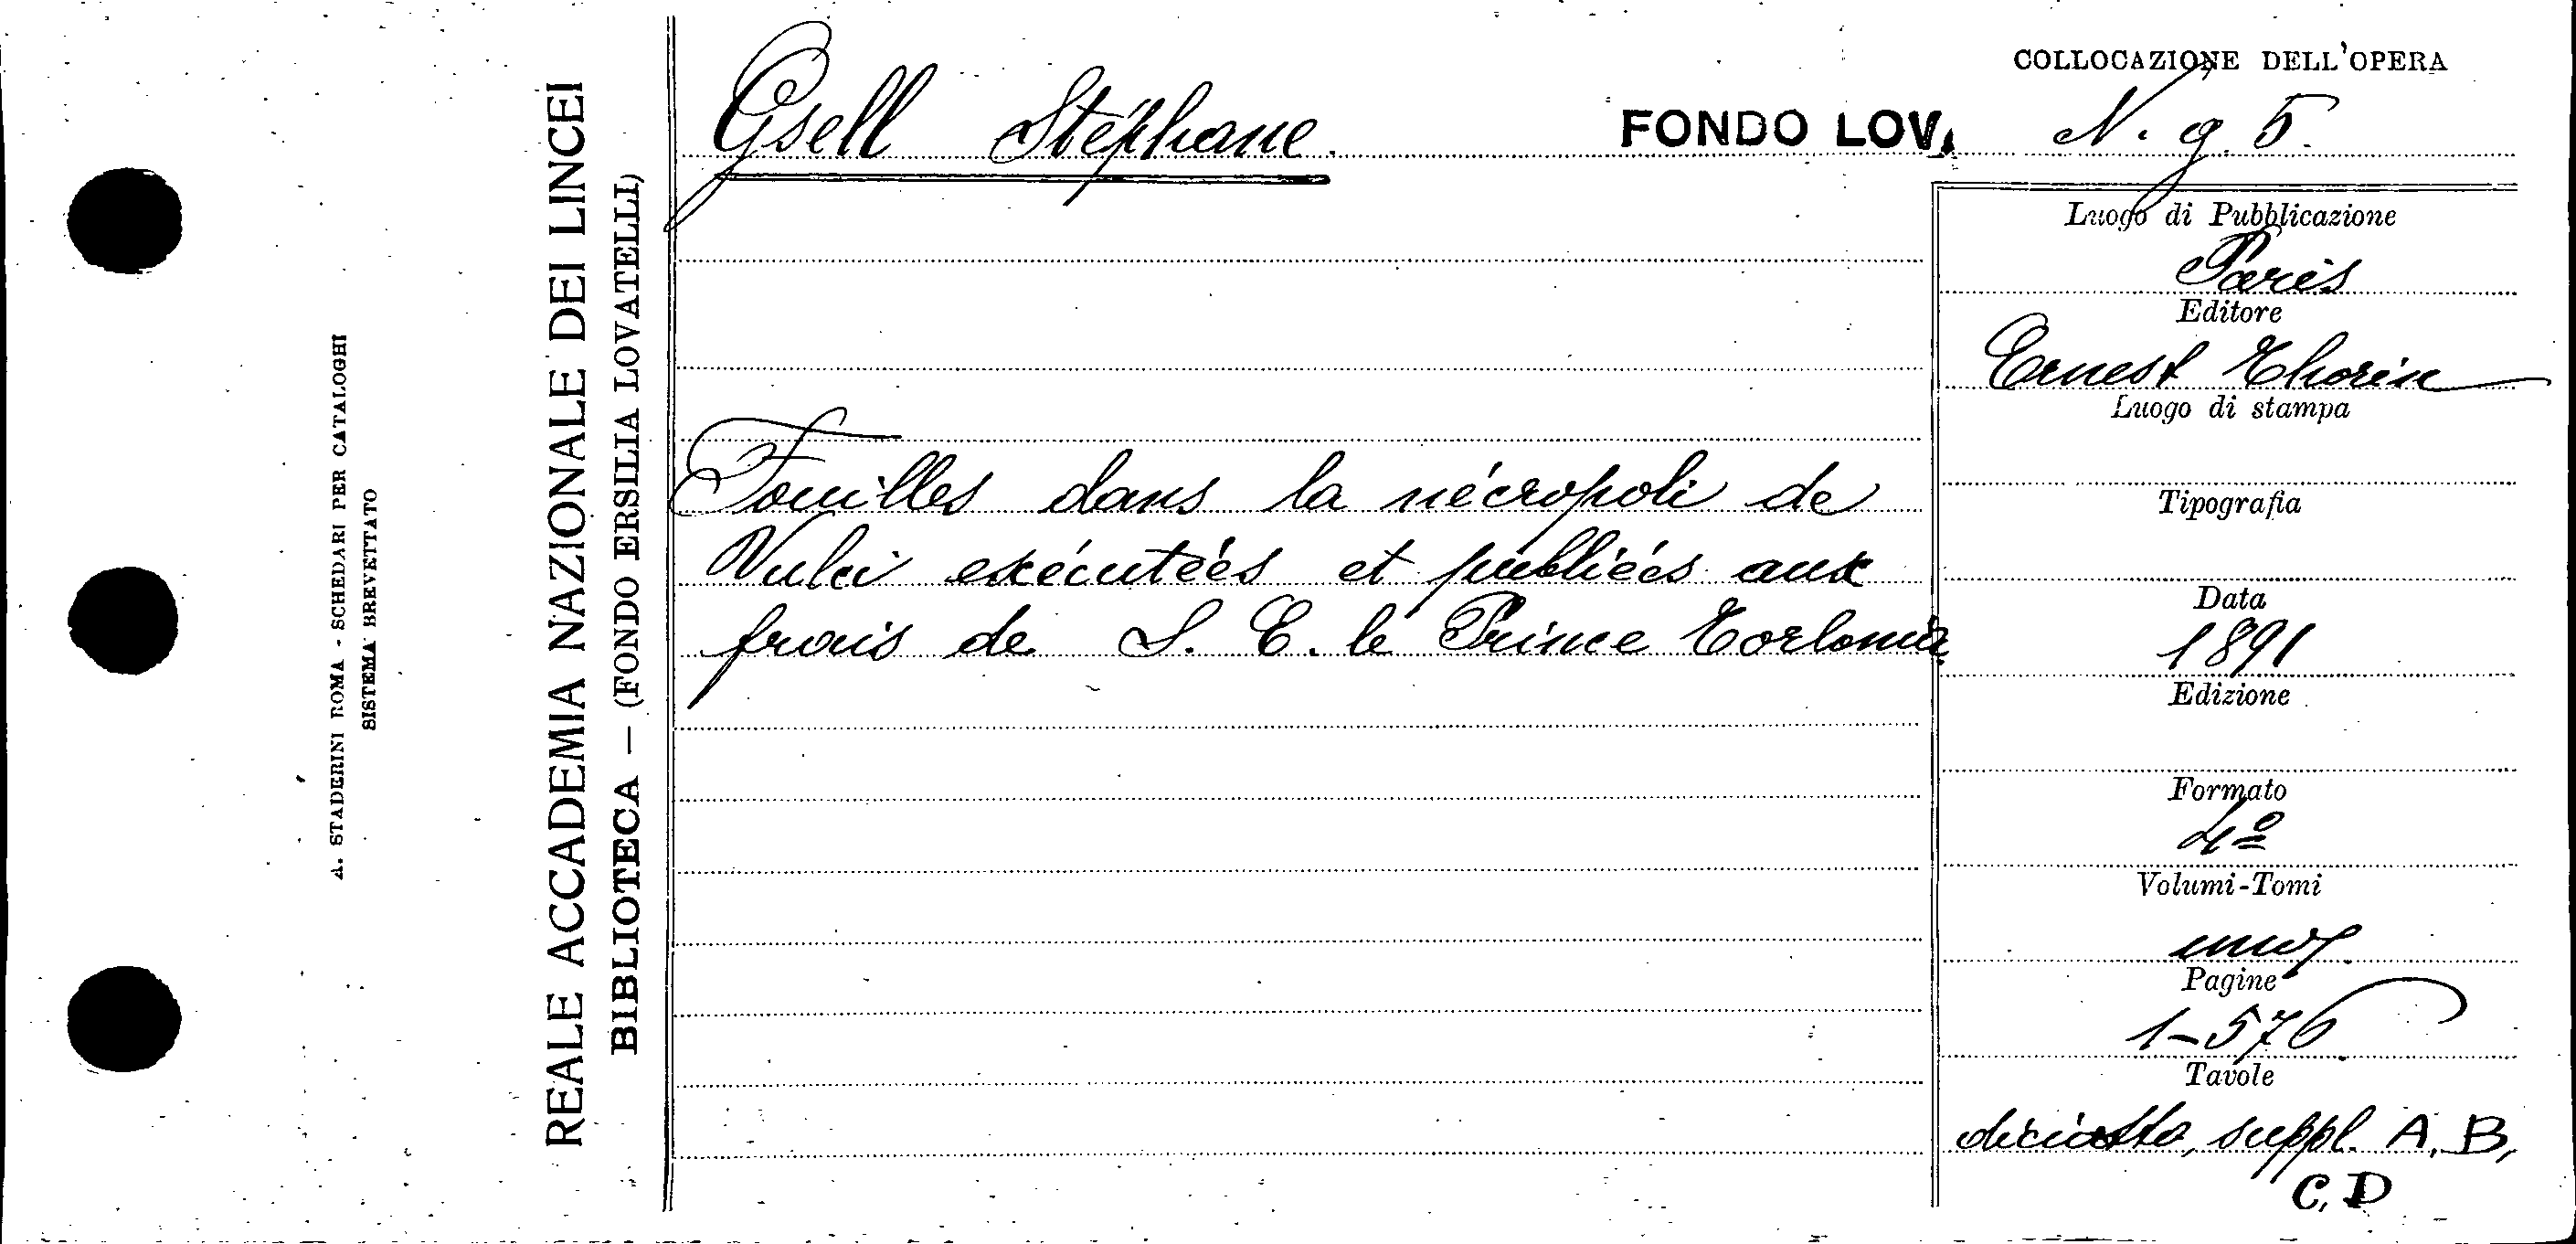 A. STADERINI ROMA - SCHEDARI PER CATALOGHI
SISTEMA BREVETTATO
REALE ACCADEMIA NAZIONALE DEI LINCEI
BIBLIOTECA — (FONDO ERSILIA LOVATELLI)
Gsell Stéphane.
FONDO LOV.
COLLOCAZIONE DELL'OPERA
N. g. 5.
Fouilles dans la nécropoli de
Vulci exécutées et publiées aux
frais de S. E. le Prince Torlonia
Luogo di Pubblicazione
Paris
Editore
Ernest Thorin
Luogo di stampa
Tipografia
Data
1891
Edizione
Formato
4º
Volumi-Tomi
uno
Pagine
1-576
Tavole
diciotto, suppl. A, B,
C, D